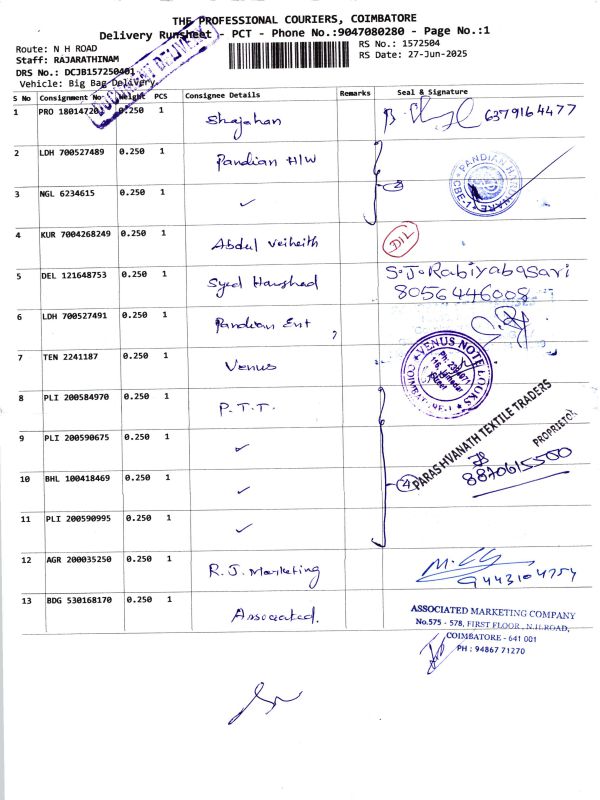 THE PROFESSIONAL COURIERS, COIMBATORE
Delivery Runsheet - PCT - Phone No.:9047080280 - Page No.:1
Route: N H ROAD
RS No.: 1572504
Staff: RAJARATHINAM
RS Date: 27-Jun-2025
DRS No.: DCJB157250401
Vehicle: Big Bag Delivery
DOCUMENT DELIVERY
S No Consignment No Weight PCS Consignee Details Remarks Seal & Signature
1 PRO 18014720 0.250 1 Shajahan 6379164477
2 LDH 700527489 0.250 1 Pandian H/W
PANDIAN HARDWARE
CBE-1
3 NGL 6234615 0.250 1 ✓ 2
4 KUR 7004268249 0.250 1 Abdul Veiheith D/L
5 DEL 121648753 0.250 1 Syed Harshad S.J.Rabiyabasari
8056446008
6 LDH 700527491 0.250 1 Pandian Ent
7 TEN 2241187 0.250 1 Venus
VENUS NOTE BOOKS
8 PLI 200584970 0.250 1 P.T.T.
9 PLI 200590675 0.250 1 ✓
PARASHVANATH TEXTILE TRADERS
PROPRIETOR
8870615500
10 BHL 100418469 0.250 1 ✓ 4
11 PLI 200590995 0.250 1 ✓
12 AGR 200035250 0.250 1 R.J. Marketing
9443104754
13 BDG 530168170 0.250 1 Associated.
ASSOCIATED MARKETING COMPANY
No.575 - 578, FIRST FLOOR, N.H.ROAD,
COIMBATORE - 641 001
PH : 94867 71270